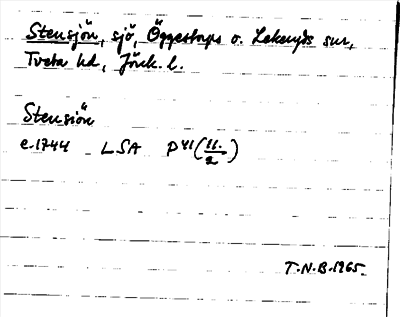 Stensjön, sjö, Öggestorps o. Lekeryds snr,
Tveta hd, Jönk. l.
Stensiön
c. 1744 LSA P VI (11./2)
T.N.B. 1965